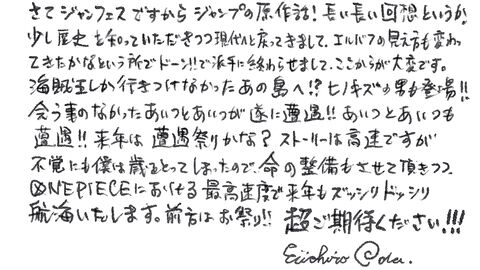 さてジャンフェスですからジャンプの原作話!長い長い回想というか
少し歴史を知っていただきつつ現代へと戻ってきまして、エルバフの見え方も変わっ
てきたかなという所でドーン!!で派手に終わらせまして、ここからが大変です。
海賊王しか行きつけなかったあの島へ!?ヒノキズの男も登場!!
会う事のなかったあいつとあいつが遂に遭遇!!あいつとあいつも
遭遇!!来年は遭遇祭りかな?ストーリーは高速ですが
不覚にも僕は歳をとってしまったので、命の整備もさせて頂きつつ
ONE PIECEにおける最高速度で来年もズッシリドッシリ
航海いたします。前方はお祭り!!超ご期待ください!!!
Eiichiro Oda.